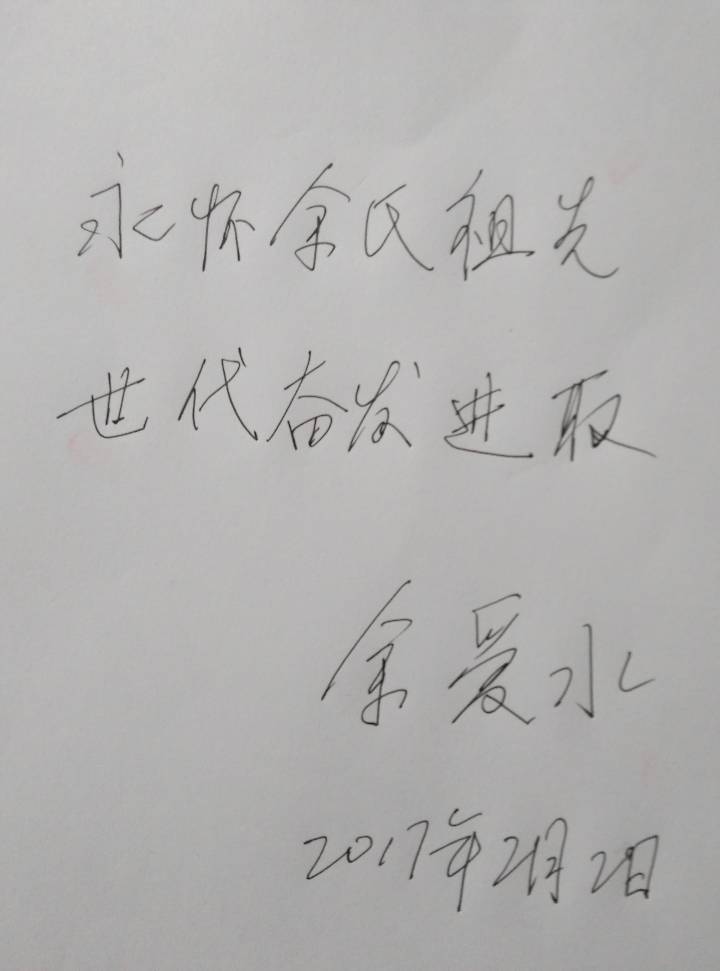 永怀余氏祖先
世代奋发进取
余爱水
2017年2月2日